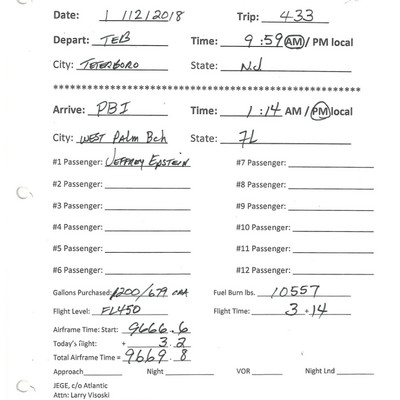 Date: 1 /12/2018 Trip: 433
Depart: TEB Time: 9:59 AM / PM local
City: TETERBORO State: NJ
********************************************
Arrive: PBI Time: 1:14 AM / PM local
City: WEST Palm Bch State: FL
#1 Passenger: JEFFREY EPSTEIN #7 Passenger:
#2 Passenger: #8 Passenger:
#3 Passenger: #9 Passenger:
#4 Passenger: #10 Passenger:
#5 Passenger: #11 Passenger:
#6 Passenger: #12 Passenger:
Gallons Purchased: 1200/679 Fuel Burn lbs. 10557
Flight Level: FL450 Flight Time: 3+14
Airframe Time: Start: 9666.6
Today's flight: + 3.2
Total Airframe Time = 9669.8
Approach Night VOR Night Lnd
JEGE, c/o Atlantic
Attn: Larry Visoski